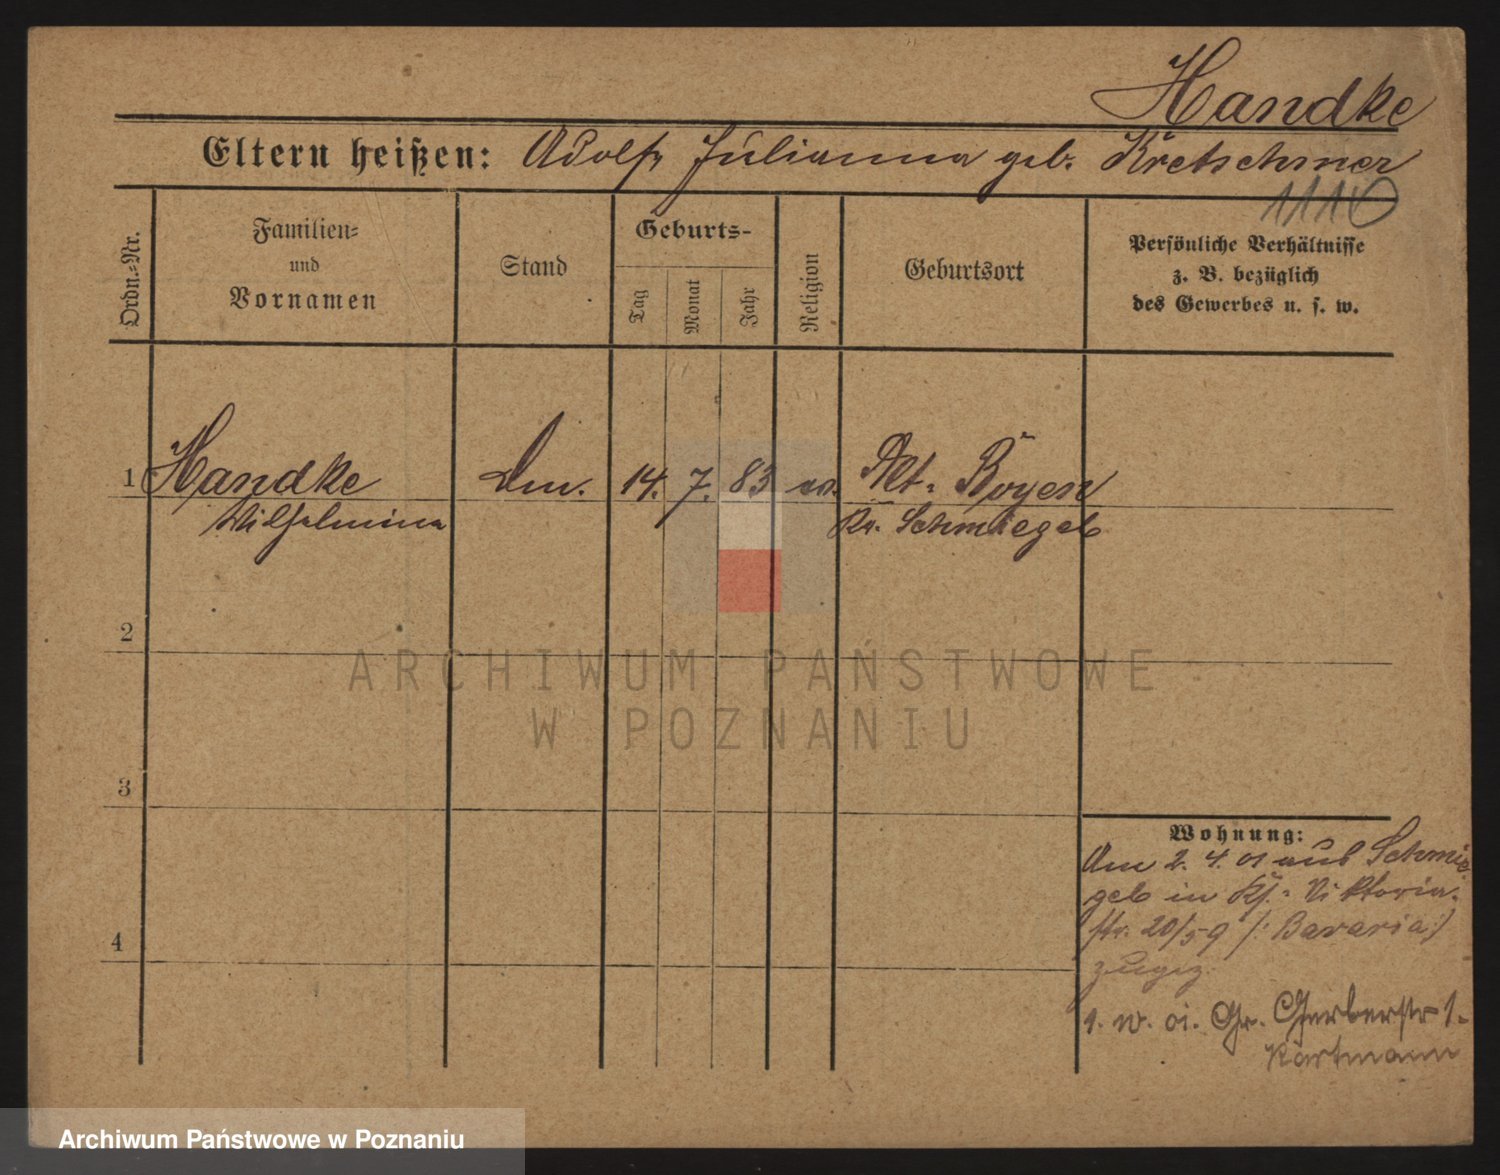 Handke
Eltern heißen: Adolf, Julianna geb. Kretschmer
1110
Ordn.=Nr.
Familien=
und
Vornamen
Stand
Geburts-
Tag
Monat
Jahr
Religion
Geburtsort
Persönliche Verhältnisse
z. B. bezüglich
des Gewerbes u. s. w.
1 Handke 14. 7. 83 ev. Alt-Boyen
Wilhelmine Kr. Schmiegel
2
ARCHIWUM PAŃSTWOWE
W POZNANIU
3
Wohnung:
Am 2. 4. 01 aus Schmie-
gel in Viktoria-
str. 20/59 /: Bavaria :/
zugez.
4
Gr. Gerberstr 1.
Archiwum Państwowe w Poznaniu